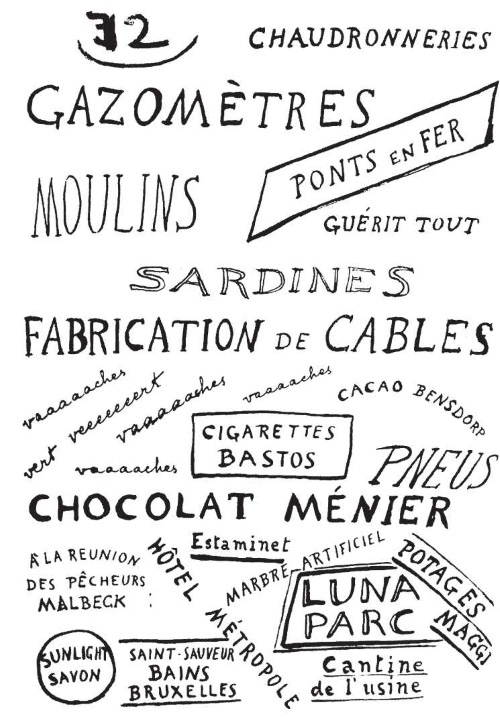 32
CHAUDRONNERIES
GAZOMÈTRES
PONTS EN FER
MOULINS
GUÉRIT TOUT
SARDINES
FABRICATION DE CABLES
vaaaaaches
veeeeeeert
vaaaaaches
vaaaaaches
CACAO BENSDORP
vert
vaaaaaches
CIGARETTES
BASTOS
PNEUS
CHOCOLAT MÉNIER
Estaminet
À LA REUNION
DES PÊCHEURS
MALBECK :
HÔTEL MÉTROPOLE
MARBRE-ARTIFICIEL
LUNA
PARC
POTAGES
MAGGI
SUNLIGHT
SAVON
SAINT-SAUVEUR
BAINS
BRUXELLES
Cantine
de l'usine